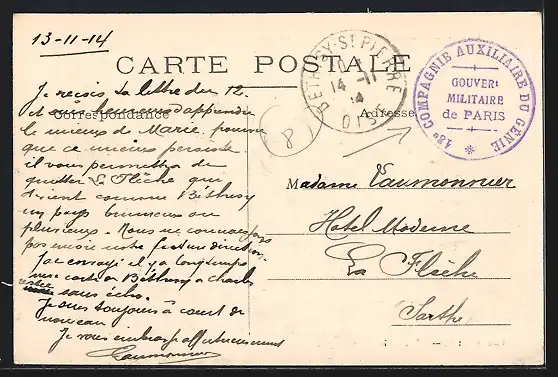 13-11-14
CARTE POSTALE
Correspondance
Adresse
Je reçois ta lettre du 12.
et suis heureux d'apprendre
le mieux de Marie. pourvu
que ce mieux persiste
il vous permettra de
quitter La Flèche qui
devient comme Béthisy
un pays brumeux ou
pluvieux. Nous ne connaissons pas
encore notre future direction.
J'ai envoyé il y a longtemps
une carte à Béthisy à Charles
restée sans écho.
Je suis toujours à court de
nouveau
Je vous embrasse affectueusement
Vaumonnier
8
BÉTHISY-St PIERRE
14 -11
14
OISE
18e COMPAGNIE AUXILIAIRE DU GÉNIE
GOUVERt
MILITAIRE
de PARIS
Madame Vaumonnier
Hotel Moderne
La Flèche
Sarthe